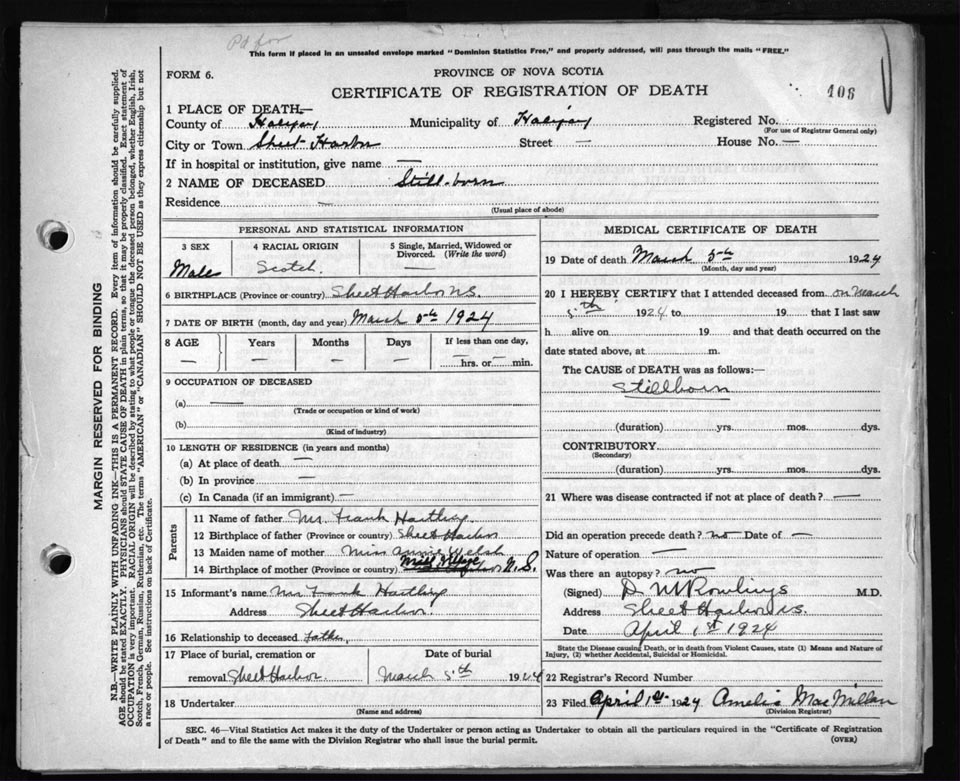 Pd for
This form if placed in an unsealed envelope marked "Dominion Statistics Free," and properly addressed, will pass through the mails "FREE."
FORM 6.
PROVINCE OF NOVA SCOTIA
CERTIFICATE OF REGISTRATION OF DEATH
108
1 PLACE OF DEATH—
County of Halifax Municipality of Halifax Registered No.
(For use of Registrar General only)
City or Town Sheet Harbor Street — House No. —
If in hospital or institution, give name —
2 NAME OF DECEASED Still-born
Residence —
(Usual place of abode)
PERSONAL AND STATISTICAL INFORMATION
3 SEX 4 RACIAL ORIGIN 5 Single, Married, Widowed or Divorced. (Write the word)
Male Scotch —
6 BIRTHPLACE (Province or country) Sheet Harbor N.S.
7 DATE OF BIRTH (month, day and year) March 5th 1924
8 AGE Years Months Days If less than one day,
— — — — —hrs. or —min.
9 OCCUPATION OF DECEASED
(a) —
(Trade or occupation or kind of work)
(b)
(Kind of industry)
10 LENGTH OF RESIDENCE (in years and months)
(a) At place of death —
(b) In province —
(c) In Canada (if an immigrant) —
Parents
11 Name of father Mr. Frank Hartling
12 Birthplace of father (Province or country) Sheet Harbor
13 Maiden name of mother Miss Annie Welsh
14 Birthplace of mother (Province or country) Mill Village N.S.
15 Informant's name Mr Frank Hartling
Address Sheet Harbor
16 Relationship to deceased father
17 Place of burial, cremation or removal Sheet Harbor Date of burial March 5th 1924
18 Undertaker
(Name and address)
MEDICAL CERTIFICATE OF DEATH
19 Date of death March 5th 1924
(Month, day and year)
20 I HEREBY CERTIFY that I attended deceased from on March
5th 1924 to 19 that I last saw
h alive on 19 and that death occurred on the
date stated above, at m.
The CAUSE of DEATH was as follows:—
Stillborn
(duration) yrs. mos. dys.
CONTRIBUTORY
(Secondary)
(duration) yrs. mos. dys.
21 Where was disease contracted if not at place of death? —
Did an operation precede death? no Date of —
Nature of operation —
Was there an autopsy? no
(Signed) D W Rowlings M.D.
Address Sheet Harbor N.S.
Date April 1st 1924
State the Disease causing Death, or in death from Violent Causes, state (1) Means and Nature of
Injury, (2) whether Accidental, Suicidal or Homicidal.
22 Registrar's Record Number
23 Filed April 1st 1924 Amelia MacMillan
(Division Registrar)
SEC. 46—Vital Statistics Act makes it the duty of the Undertaker or person acting as Undertaker to obtain all the particulars required in the "Certificate of Registration
of Death" and to file the same with the Division Registrar who shall issue the burial permit.
(OVER)
MARGIN RESERVED FOR BINDING
N.B.—WRITE PLAINLY WITH UNFADING INK—THIS IS A PERMANENT RECORD. Every item of information should be carefully supplied.
AGE should be stated EXACTLY. PHYSICIANS should STATE CAUSE OF DEATH in plain terms, so that it may be properly classified. Exact statement of
OCCUPATION is very important. RACIAL ORIGIN will be described by stating to what people or tongue the deceased person belonged, whether English, Irish,
Scotch, French, German, Russian, Ruthenian, etc. The terms "AMERICAN" or "CANADIAN" SHOULD NOT BE USED as they express citizenship but not
a race or people. See instructions on back of Certificate.